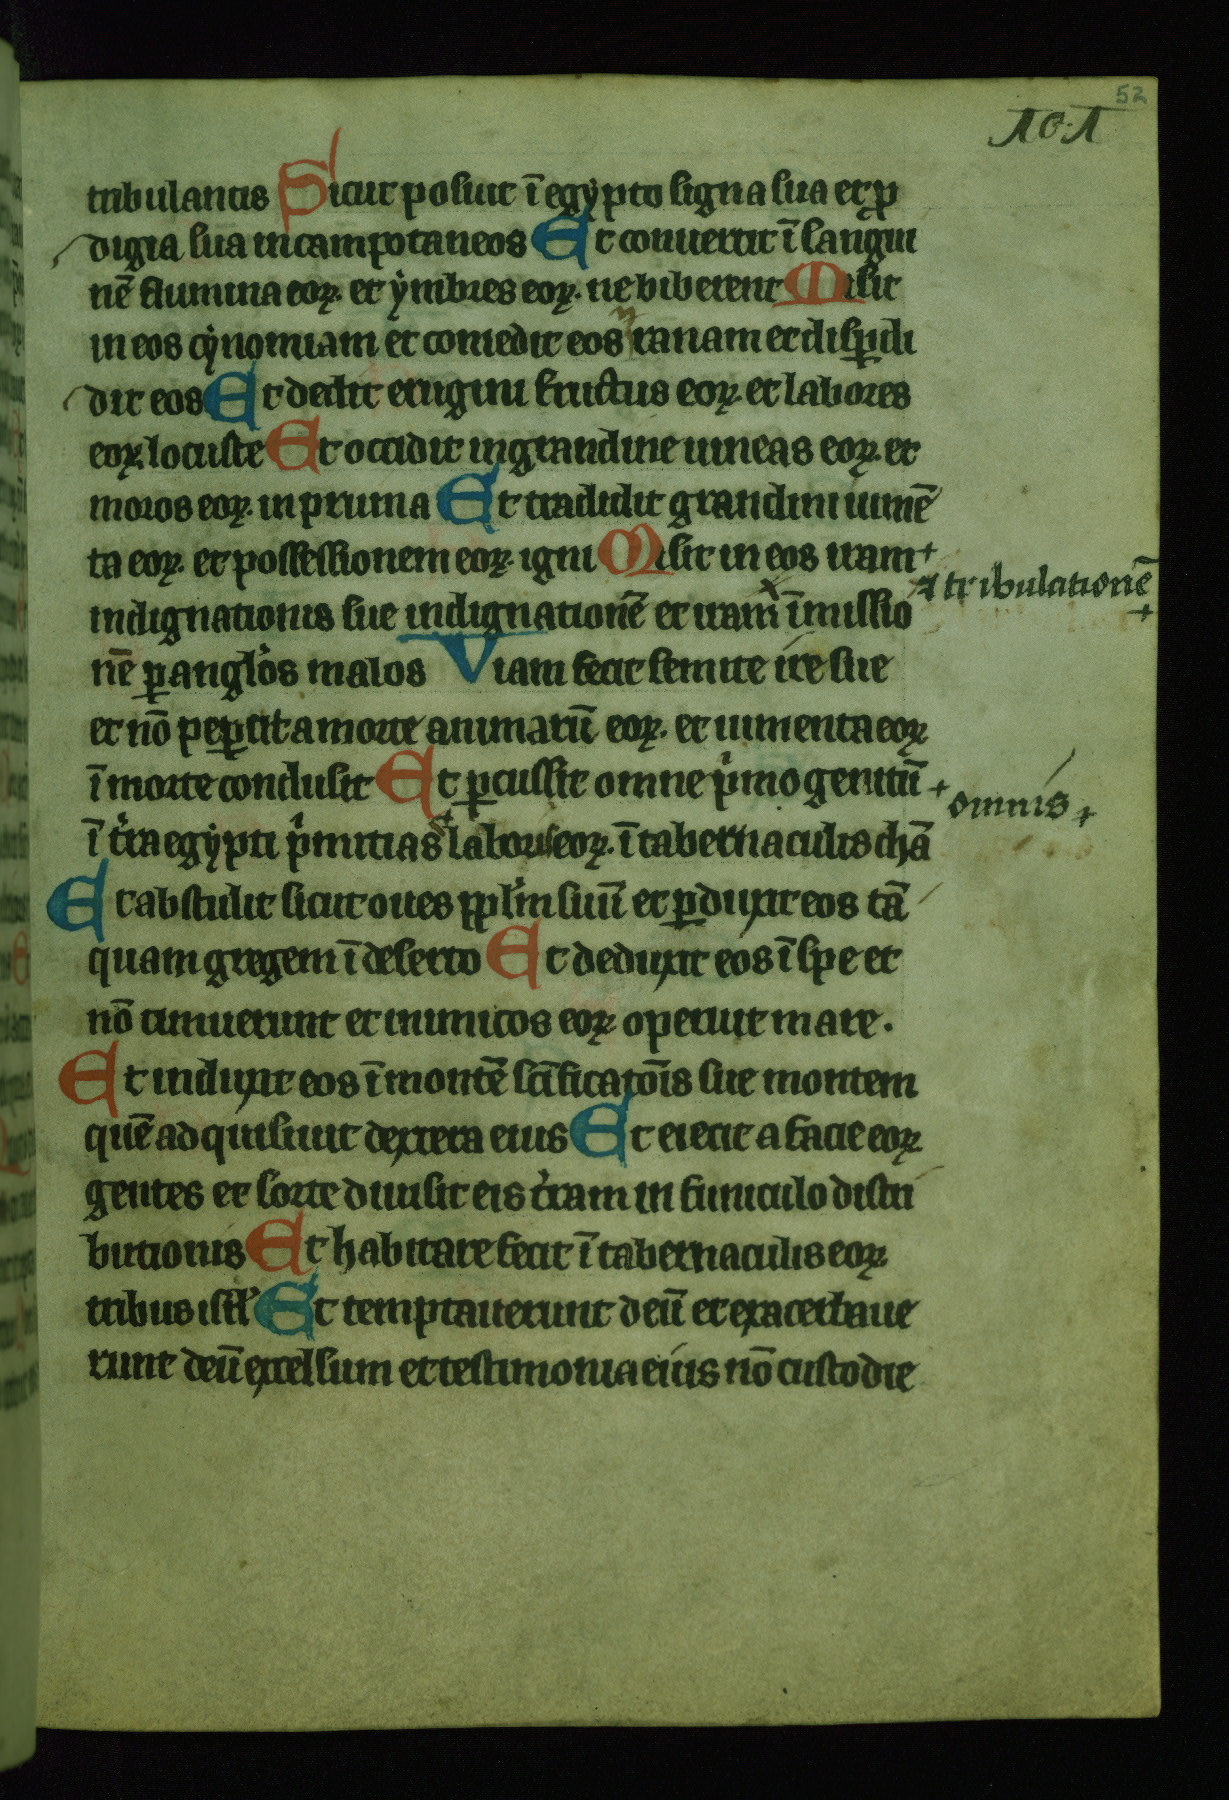 52
101
tribulantis Sicut posuit ī egypto signa sua et ꝓ
digia sua in campo taneos Et conuertit ī sangui
nē flumina eoꝝ. et ymbres eoꝝ. ne biberent Misit
in eos cynomiam et comedit eos ranam et disꝑdi
dit eos Et dedit erugini fructus eoꝝ. et labores
eoꝝ. locuste Et occidit in grandine uineas eoꝝ. et
moros eoꝝ. in pruina Et tradidit grandini iumē
ta eoꝝ. et possessionem eoꝝ. igni Misit in eos iram +
⁊ tribulationē +
indignationis sue indignationē et iram īmissio
nē ꝑ anglos malos Viam fecit semite ire sue
et nō peꝑcit a morte animarū eoꝝ. et iumenta eoꝝ
ī morte conclusit Et ꝑcussit omne pͥmogenitū +
omnis +
ī tͬra egypti pͥmitias laboris eoꝝ. ī tabernaculis chā
Et abstulit sicut oues ppl̄m suū et ꝑduxit eos tā
quam gregem ī deserto Et deduxit eos ī spe et
nō timuerunt et inimicos eoꝝ operuit mare.
Et induxit eos ī montē scīficatōis sue montem
quē adquisiuit dextera eius Et eiecit a facie eoꝝ.
gentes et sorte diuisit eis tͬram in funiculo distri
butionis Et habitare fecit ī tabernaculis eoꝝ.
tribus isrl̄ Et temptauerunt deū et exacerbaue
runt deū excelsum et testimonia eius nō custodie